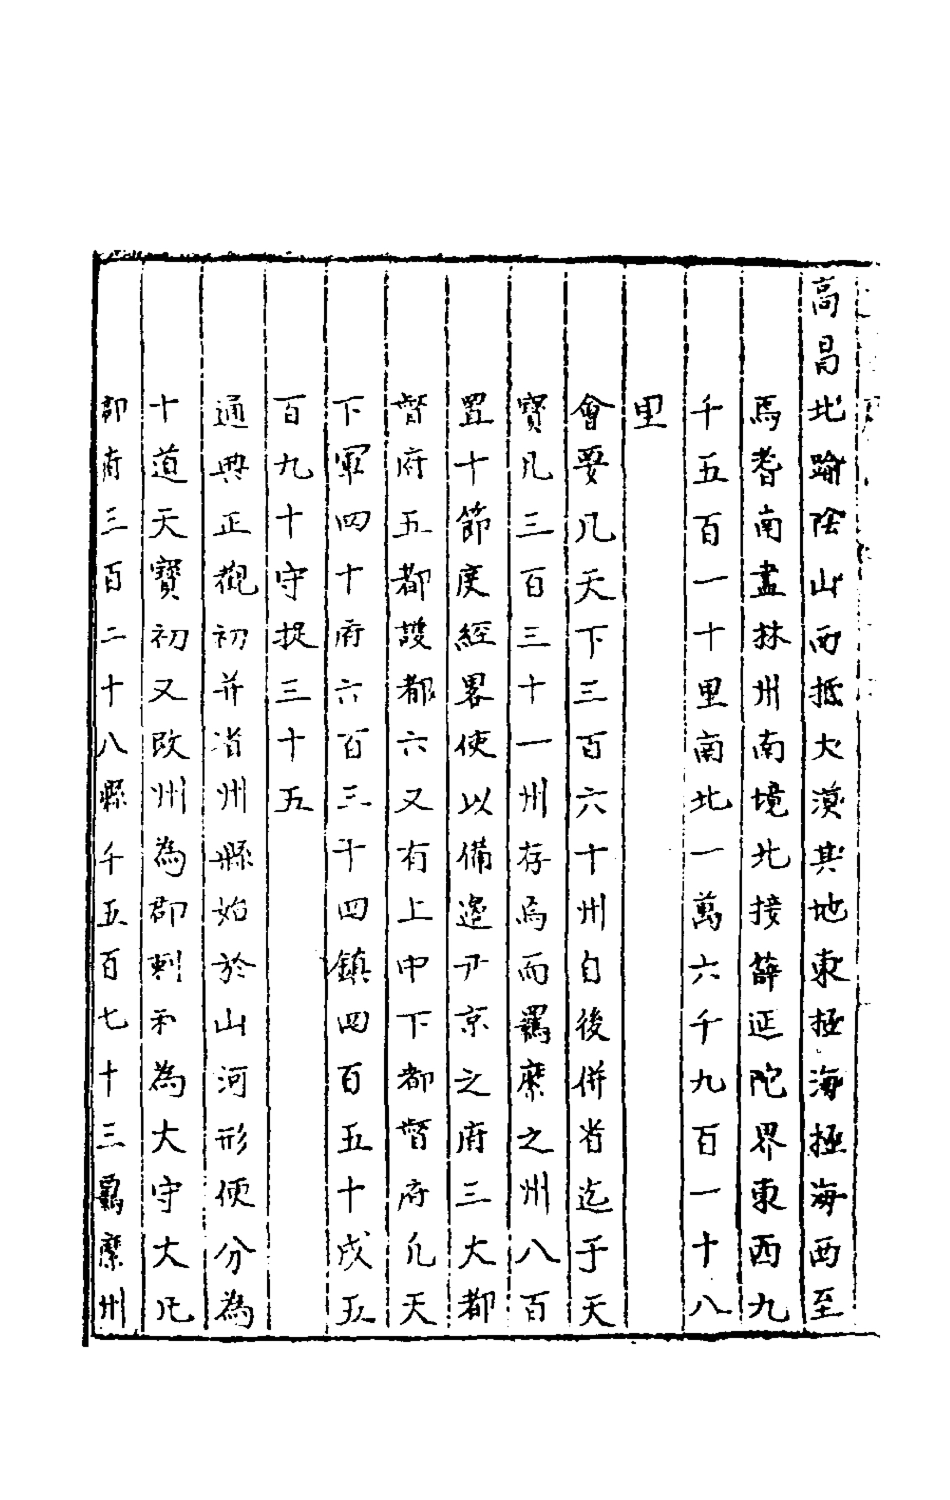 高昌北踰陰山西抵大漠其地東極海極海西至
焉耆南盡林州南境北接薛延陀界東西九
千五百一十里南北一萬六千九百一十八
里
會要凡天下三百六十州自後併省迄于天
寶凡三百三十一州存焉而羈縻之州八百
置十節度經畧使以備邊尹京之府三大都
督府五都護都六又有上中下都督府凡天
下軍四十府六百三十四鎮四百五十戍五
百九十守捉三十五
通典正觀初并省州縣始於山河形便分為
十道天寶初又改州為郡刺和為大守大凡
郡府三百二十八縣千五百七十三羈縻州